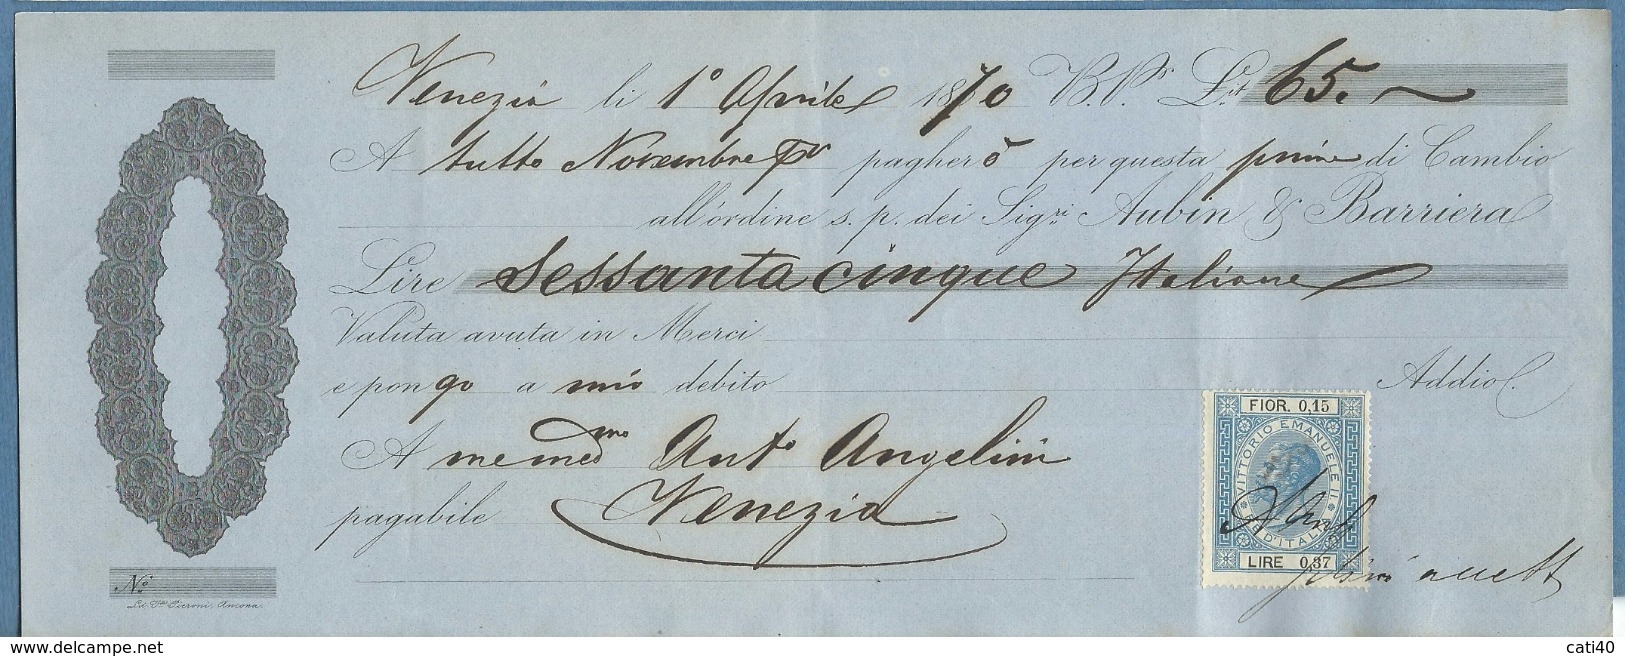 Venezia li 1° Aprile 1870 B. P. Lit 65.~
A tutto Novembre pagherò per questa prima di Cambio
all'ordine s. p. dei Sigri Aubin & Barriera
Lire Sessantacinque Italiane
Valuta avuta in Merci
e pongo a mio debito Addio
A memedmo Anto Angelini
pagabile Venezia
FIOR. 0,15
VITTORIO EMANUELE II
RE D'ITALIA
LIRE 0,37
accett
No
Lit. Picroni, Ancona.
www.delcampe.net
cati40